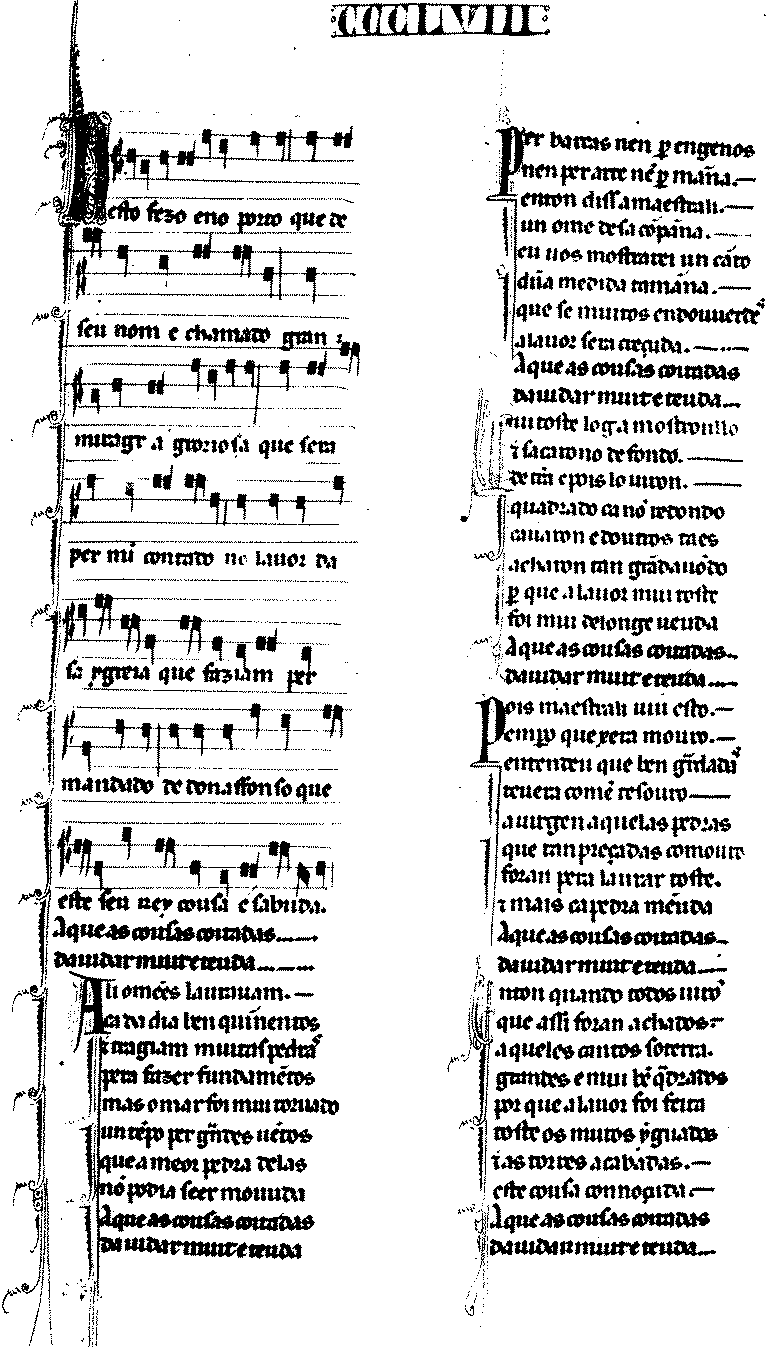 CCCLVIII
esto fezo eno porto que de
seu nom e chamato gran
miragr a groriosa que sera
per mi contato no lauor da
sa ygreia que faziam per
mandado de donaffonso que
este seu rey cousa e sabuda.
Aque as cousas coutadas
daiudar muit e teuda
Ali omẽes laurauam.
cada dia ben quinentos
τ tragiam muitas pedras
pera fazer fundamẽtos
mas o mar foi mui toruado
un tẽpo per grãdes uẽtos
que a meor pedra delas
nõ podia seer mouuda
Aque as cousas coutadas
daiudar muit e teuda
Per barcas nen ꝑ engenos
nen per arte nẽ ꝑ maña.
enton dissa maestrali.
un ome de sa cõpãna.
eu uos mostrarei un cãto
dũa medida tamãna.
que se muitos en douuerdes
a lauor sera creçuda.
Aque as cousas coutadas
daiudar muit e teuda
mui toste log a mostroulo
τ sacarono de fondo.
de terra e pois lo uiron.
quadrado ca nõ redondo
cauaron e doutros taes
acharon tan grãdauõdo
ꝑ que a lauor mui toste
foi mui de longe ueuda
Aque as cousas coutadas
daiudar muit e teuda
Pois maestrali uiu esto.
que xera mouro.
entendeu que ben guardadas
teuera comẽ tesouro
a uirgen aquelas pedras
que tan preçadas comouro
foran pera laurar toste.
τ mais ca pedra mẽuda
Aque as cousas coutadas
daiudar muit e teuda
nton quando todos uirõ
que assi foran achados
aqueles cantos so terra.
grandes e mui bẽ q̃drados
por que a lauor foi feita
toste os muros yguados
τ as torres acabadas.
este cousa connoçuda.
Aque as cousas coutadas
daiudar muit e teuda